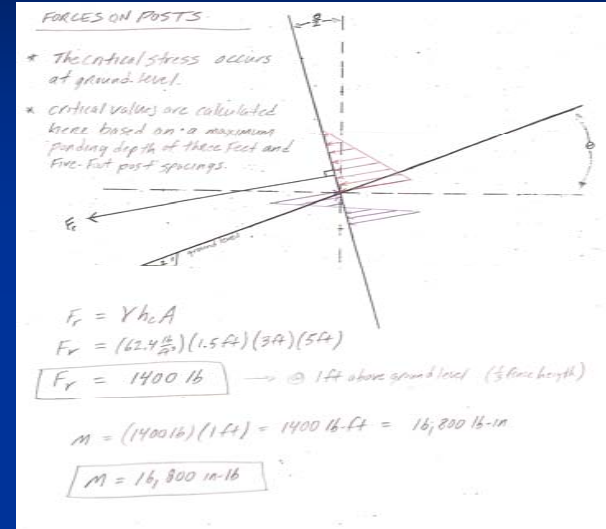 FORCES ON POSTS
* The critical stress occurs
at ground level.
* critical values are calculated
here based on a maximum
ponding depth of three feet and
Five-Foot post spacings.
Fr
ground level
θ
Fr = γhcA
Fr = (62.4 lb/ft³)(1.5 ft)(3ft)(5ft)
Fr = 1400 lb → @ 1ft above ground level (⅓ fence height)
M = (1400 lb)(1 ft) = 1400 lb-ft = 16,800 lb-in
M = 16,800 in-lb